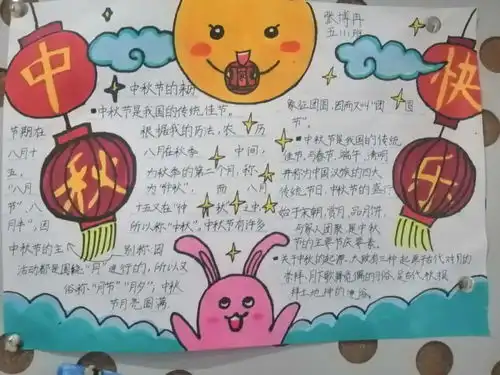 中秋快乐
张博冉
五、
中秋节的来
▪中秋节是我国的传统佳节。
根据我的历法，农 历
八月在秋季 中间，
为秋季的第二个月，称
为“仲秋”， 而 八月
十五又在“仲 秋”之中，
所以称“中秋”。中秋节有许多
别称：因
节期在
八月十
五，
“八月
节”，八
月半”，因
中秋节的主
活动都是围绕“月”进行的，所以又
俗称“月节”“月夕”；中秋
节月亮圆满，
象征团圆，因而又叫“团 圆
节”。
▪中秋节是我国的传统
佳节，与春节、端午、清明
并称为中国汉族的四大
传统节日，中秋节的盛行
始于宋朝，赏月、吃月饼、
与家人团聚，是中秋
节的主要节庆要素。
▪关于中秋的起源，大致有三种：起典于古代对月的
崇拜、月下歌舞觅偶的习俗，是古代秋报
拜土地神的